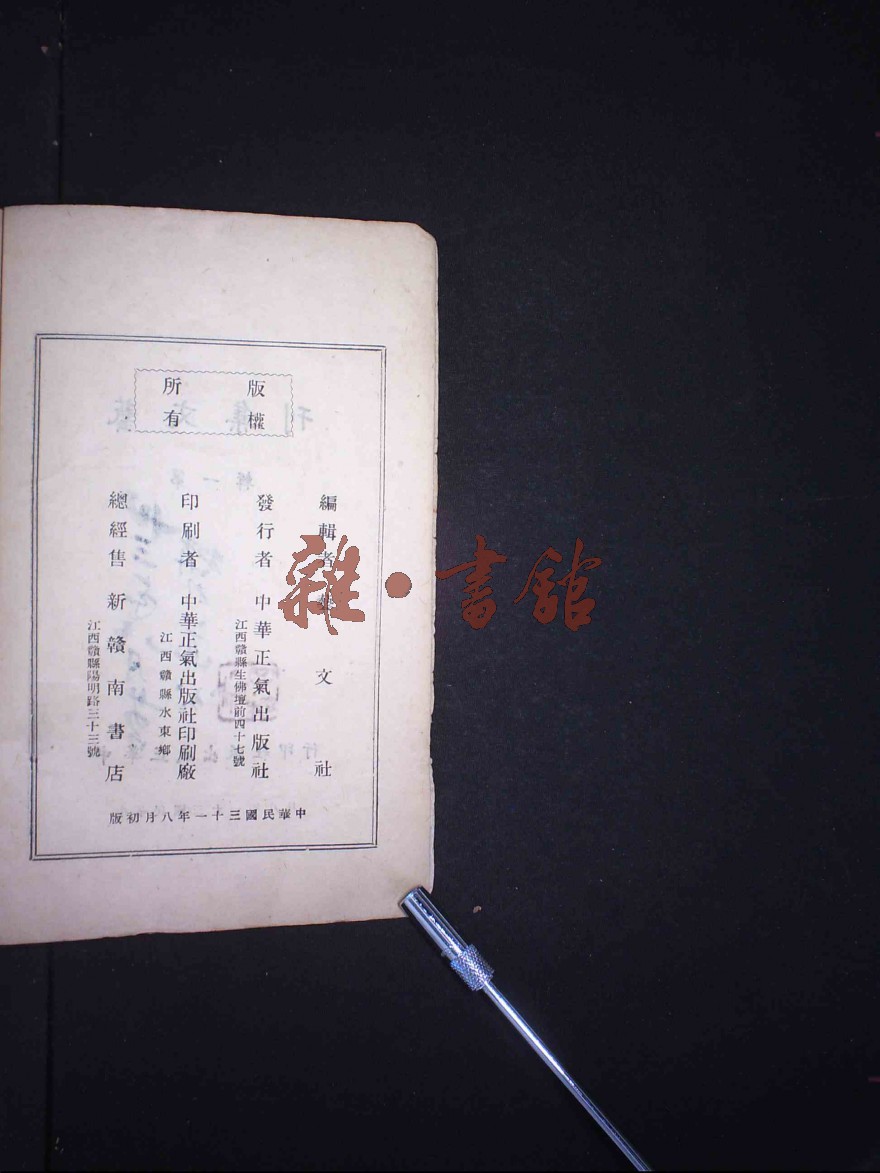 版權
所有
編輯者 文社
發行者 中華正氣出版社
江西贛縣生佛壇前四十七號
印刷者 中華正氣出版社印刷廠
江西贛縣水東鄉
總經售 新贛南書店
江西贛縣陽明路三十三號
中華民國三十一年八月初版
雜·書館